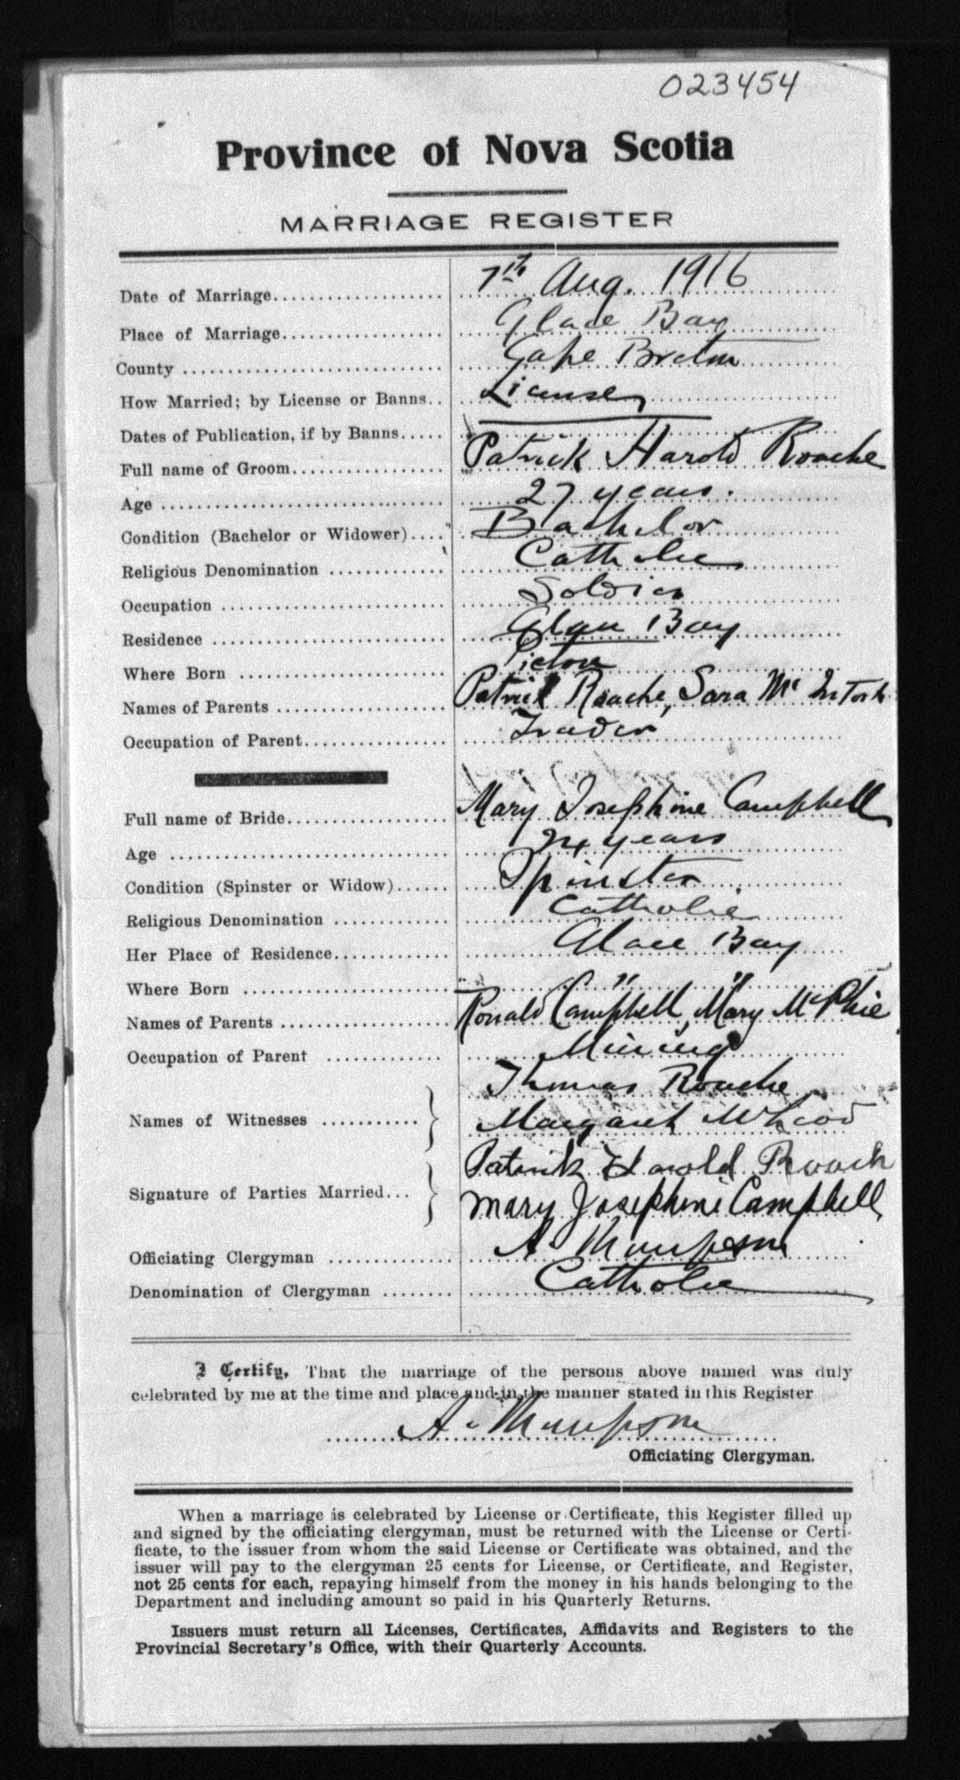 023454
Province of Nova Scotia
MARRIAGE REGISTER
Date of Marriage.................... 7th Aug. 1916
Place of Marriage................... Glace Bay
County .............................. Cape Breton
How Married; by License or Banns.. License
Dates of Publication, if by Banns.....
Full name of Groom.................. Patrick Harold Roache
Age ................................. 27 years.
Condition (Bachelor or Widower).... Bachelor
Religious Denomination ............. Catholic
Occupation .......................... Soldier
Residence ........................... Glace Bay
Where Born ........................ Pictou
Names of Parents ................... Patrick Roache, Sara McIntosh
Occupation of Parent................. Trader
Full name of Bride................... Mary Josephine Campbell
Age ................................. 24 years
Condition (Spinster or Widow)...... Spinster
Religious Denomination ............. Catholic
Her Place of Residence.............. Glace Bay
Where Born ........................ " "
Names of Parents ................... Ronald Campbell, Mary McPhie
Occupation of Parent .............. Mining
Thomas Roache
Names of Witnesses ........... } Margaret McLeod
Patrick Harold Roach
Signature of Parties Married... } Mary Josephine Campbell
Officiating Clergyman .............. A. Thompson
Denomination of Clergyman ........ Catholic
I Certify, That the marriage of the persons above named was duly
celebrated by me at the time and place and in the manner stated in this Register
A. Thompson
Officiating Clergyman.
When a marriage is celebrated by License or Certificate, this Register filled up
and signed by the officiating clergyman, must be returned with the License or Certi-
ficate, to the issuer from whom the said License or Certificate was obtained, and the
issuer will pay to the clergyman 25 cents for License, or Certificate, and Register,
not 25 cents for each, repaying himself from the money in his hands belonging to the
Department and including amount so paid in his Quarterly Returns.
Issuers must return all Licenses, Certificates, Affidavits and Registers to the
Provincial Secretary's Office, with their Quarterly Accounts.